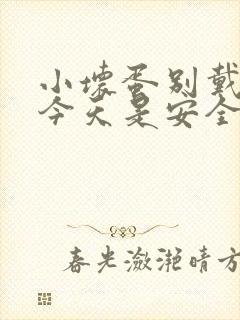 小坏蛋别戴
今天是安全
春光潋滟晴方